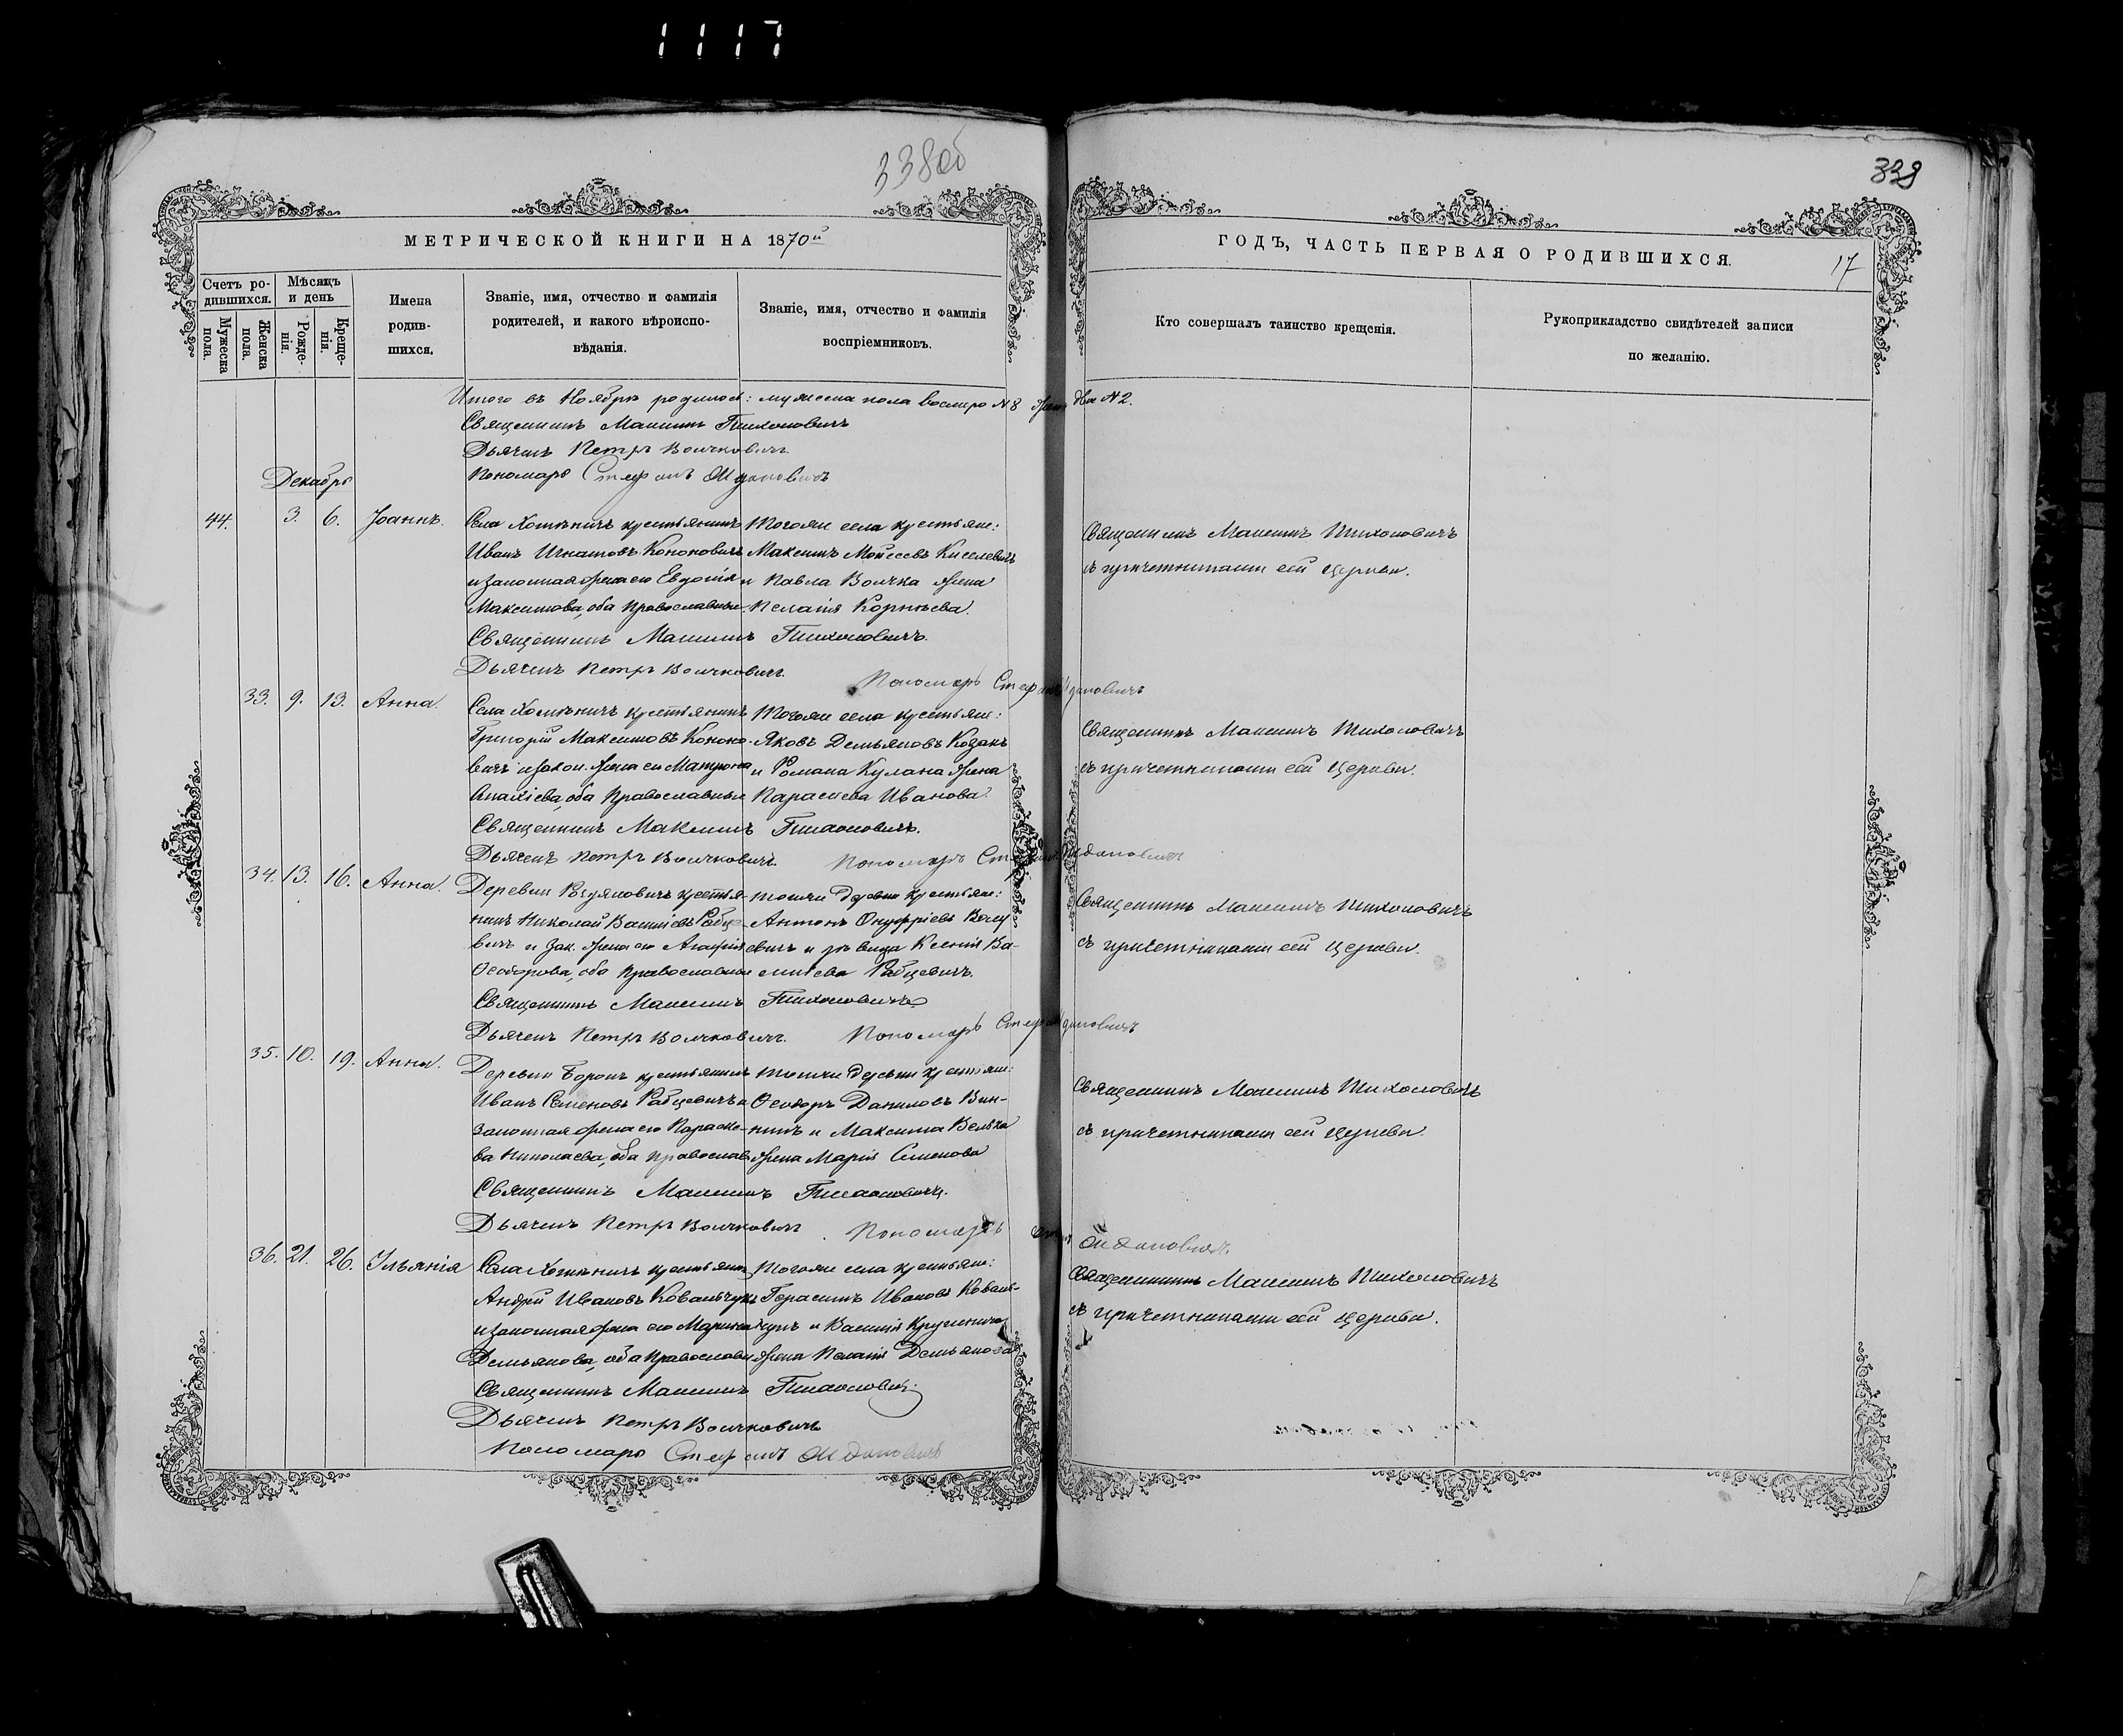 1117
338об
339
МЕТРИЧЕСКОЙ КНИГИ НА 1870й
ГОДЪ, ЧАСТЬ ПЕРВАЯ О РОДИВШИХСЯ.
17
Счетъ ро-
дившихся.
Мужеска пола.
Женска пола.
Мѣсяцъ
и день
Рожде-
нія.
Креще-
нія.
Имена
родив-
шихся.
Званіе, имя, отчество и фамилія
родителей, и какого вѣроиспо-
вѣданія.
Званіе, имя, отчество и фамилія
воспріемниковъ.
Кто совершалъ таинство крещенія.
Рукоприкладство свидѣтелей записи
по желанію.
Итого въ Ноябрѣ родилось: мужеска пола восмеро №8 жен. две №2.
Священникъ Максимъ Тихоновичъ
Дьячекъ Петръ Волчковичъ.
Пономарь Стефанъ Ждановичъ
Декабрь
44. 3. 6. Іоаннъ.
Села Хотѣничъ крестьянинъ
Иванъ Игнатовъ Кононовичъ
и законная жена его Евдокія
Максимова, оба православные
Тогоже села крестьяне:
Максимъ Моисеевъ Киселевичъ
и Павла Волчка жена
Пелагія Корнѣева.
Священникъ Максимъ Тихоновичъ
съ причетниками сей церкви.
Священникъ Максимъ Тихоновичъ.
Дьячекъ Петръ Волчковичъ.
Пономарь Стефанъ Ждановичъ
33. 9. 13. Анна.
Села Хотѣничъ крестьянинъ
Григорій Максимовъ Конono-
вичъ и закон. жена его Матрона
оба православные
Тогоже села крестьяне:
Яковъ Демьяновъ Козакъ
и Романа Кулана жена
Параскева Иванова.
Священникъ Максимъ Тихоновичъ
съ причетниками сей церкви.
Священникъ Максимъ Тихоновичъ.
Дьячекъ Петръ Волчковичъ.
Пономарь Стефанъ Ждановичъ
34. 13. 16. Анна.
Деревни крестья-
нинъ Николай Василіевъ Рабце-
вичъ и зак. жена его Агафія
Ѳеодорова, оба православные
тойже деревни крестьяне:
Антонъ Онуфріевъ
евичъ и дѣвица Ксенія Ва-
силіева Рабцевичъ.
Священникъ Максимъ Тихоновичъ
съ причетниками сей церкви.
Священникъ Максимъ Тихоновичъ
Дьячекъ Петръ Волчковичъ.
Пономарь Стефанъ Ждановичъ
35. 10. 19. Анна.
Деревни Борокъ крестьянинъ
Иванъ Семеновъ Рабцевичъ и
законная жена его Параске-
ва Николаева, оба православ.
тойже деревни крестьяне:
Ѳеодоръ Даниловъ Вин-
никъ и Максима
жена Марія Семенова
Священникъ Максимъ Тихоновичъ
съ причетниками сей церкви.
Священникъ Максимъ Тихоновичъ.
Дьячекъ Петръ Волчковичъ
Пономарь Ждановичъ.
36. 21. 26. Ульянія
Села Хотѣничъ крестьянинъ
Андрей Ивановъ Ковальчукъ
и законная жена его Марина
Демьянова, оба православн.
Тогоже села крестьяне:
Герасимъ Ивановъ Коваль-
чукъ и Василія
жена Пелагія Демьянова
Священникъ Максимъ Тихоновичъ
съ причетниками сей церкви.
Священникъ Максимъ Тихоновичъ.
Дьячекъ Петръ Волчковичъ
Пономарь Стефанъ Ждановичъ